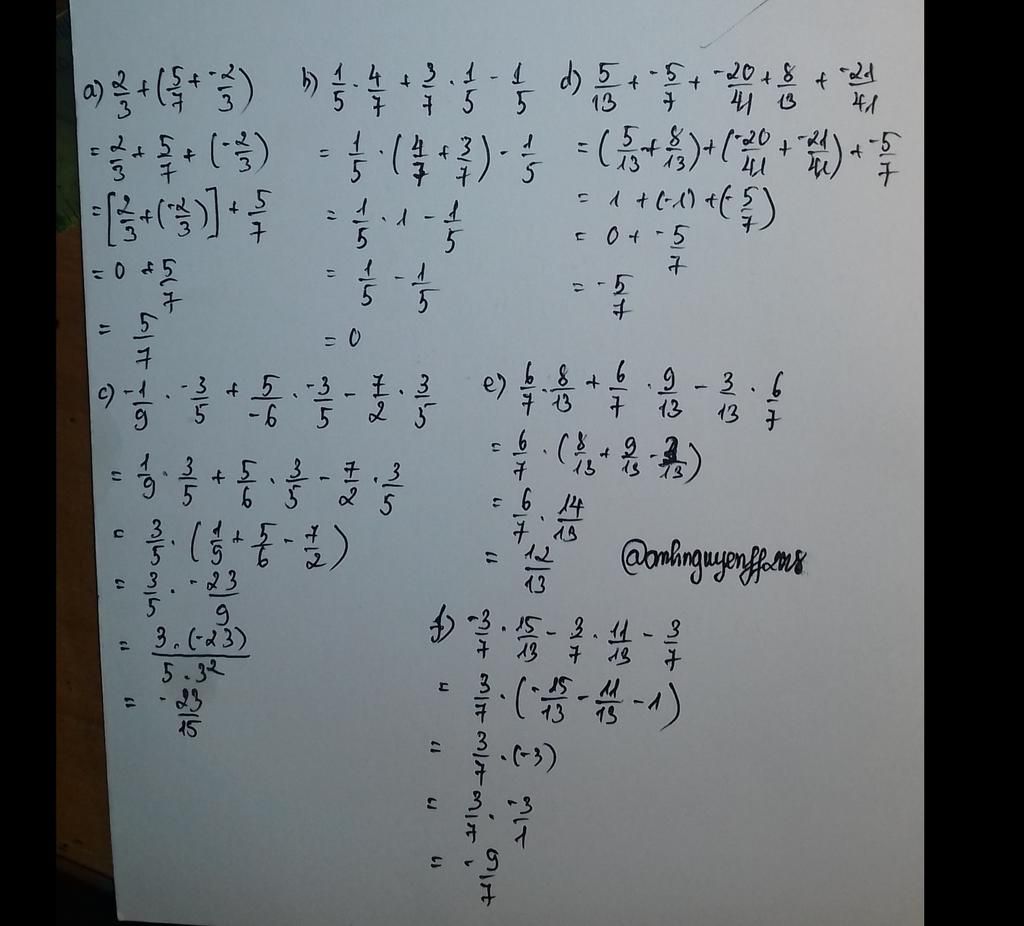 a) 2/3 + (5/7 + -2/3)
= 2/3 + 5/7 + (-2/3)
= [2/3 + (-2/3)] + 5/7
= 0 + 5/7
= 5/7
b) 1/5 . 4/7 + 3/7 . 1/5 - 1/5
= 1/5 . (4/7 + 3/7) - 1/5
= 1/5 . 1 - 1/5
= 1/5 - 1/5
= 0
d) 5/13 + -5/7 + -20/41 + 8/13 + -21/41
= (5/13 + 8/13) + (-20/41 + -21/41) + -5/7
= 1 + (-1) + (-5/7)
= 0 + -5/7
= -5/7
c) -1/9 . -3/5 + 5/-6 . -3/5 - 7/2 . 3/5
= 1/9 . 3/5 + 5/6 . 3/5 - 7/2 . 3/5
= 3/5 . (1/9 + 5/6 - 7/2)
= 3/5 . -23/9
= 3.(-23)/5.3²
= -23/15
e) 6/7 . 8/13 + 6/7 . 9/13 - 3/13 . 6/7
= 6/7 . (8/13 + 9/13 - 3/13)
= 6/7 . 14/13
= 12/13
f) -3/7 . 15/13 - 3/7 . 11/13 - 3/7
= 3/7 . (-15/13 - 11/13 - 1)
= 3/7 . (-3)
= 3/7 . -3/1
= -9/7